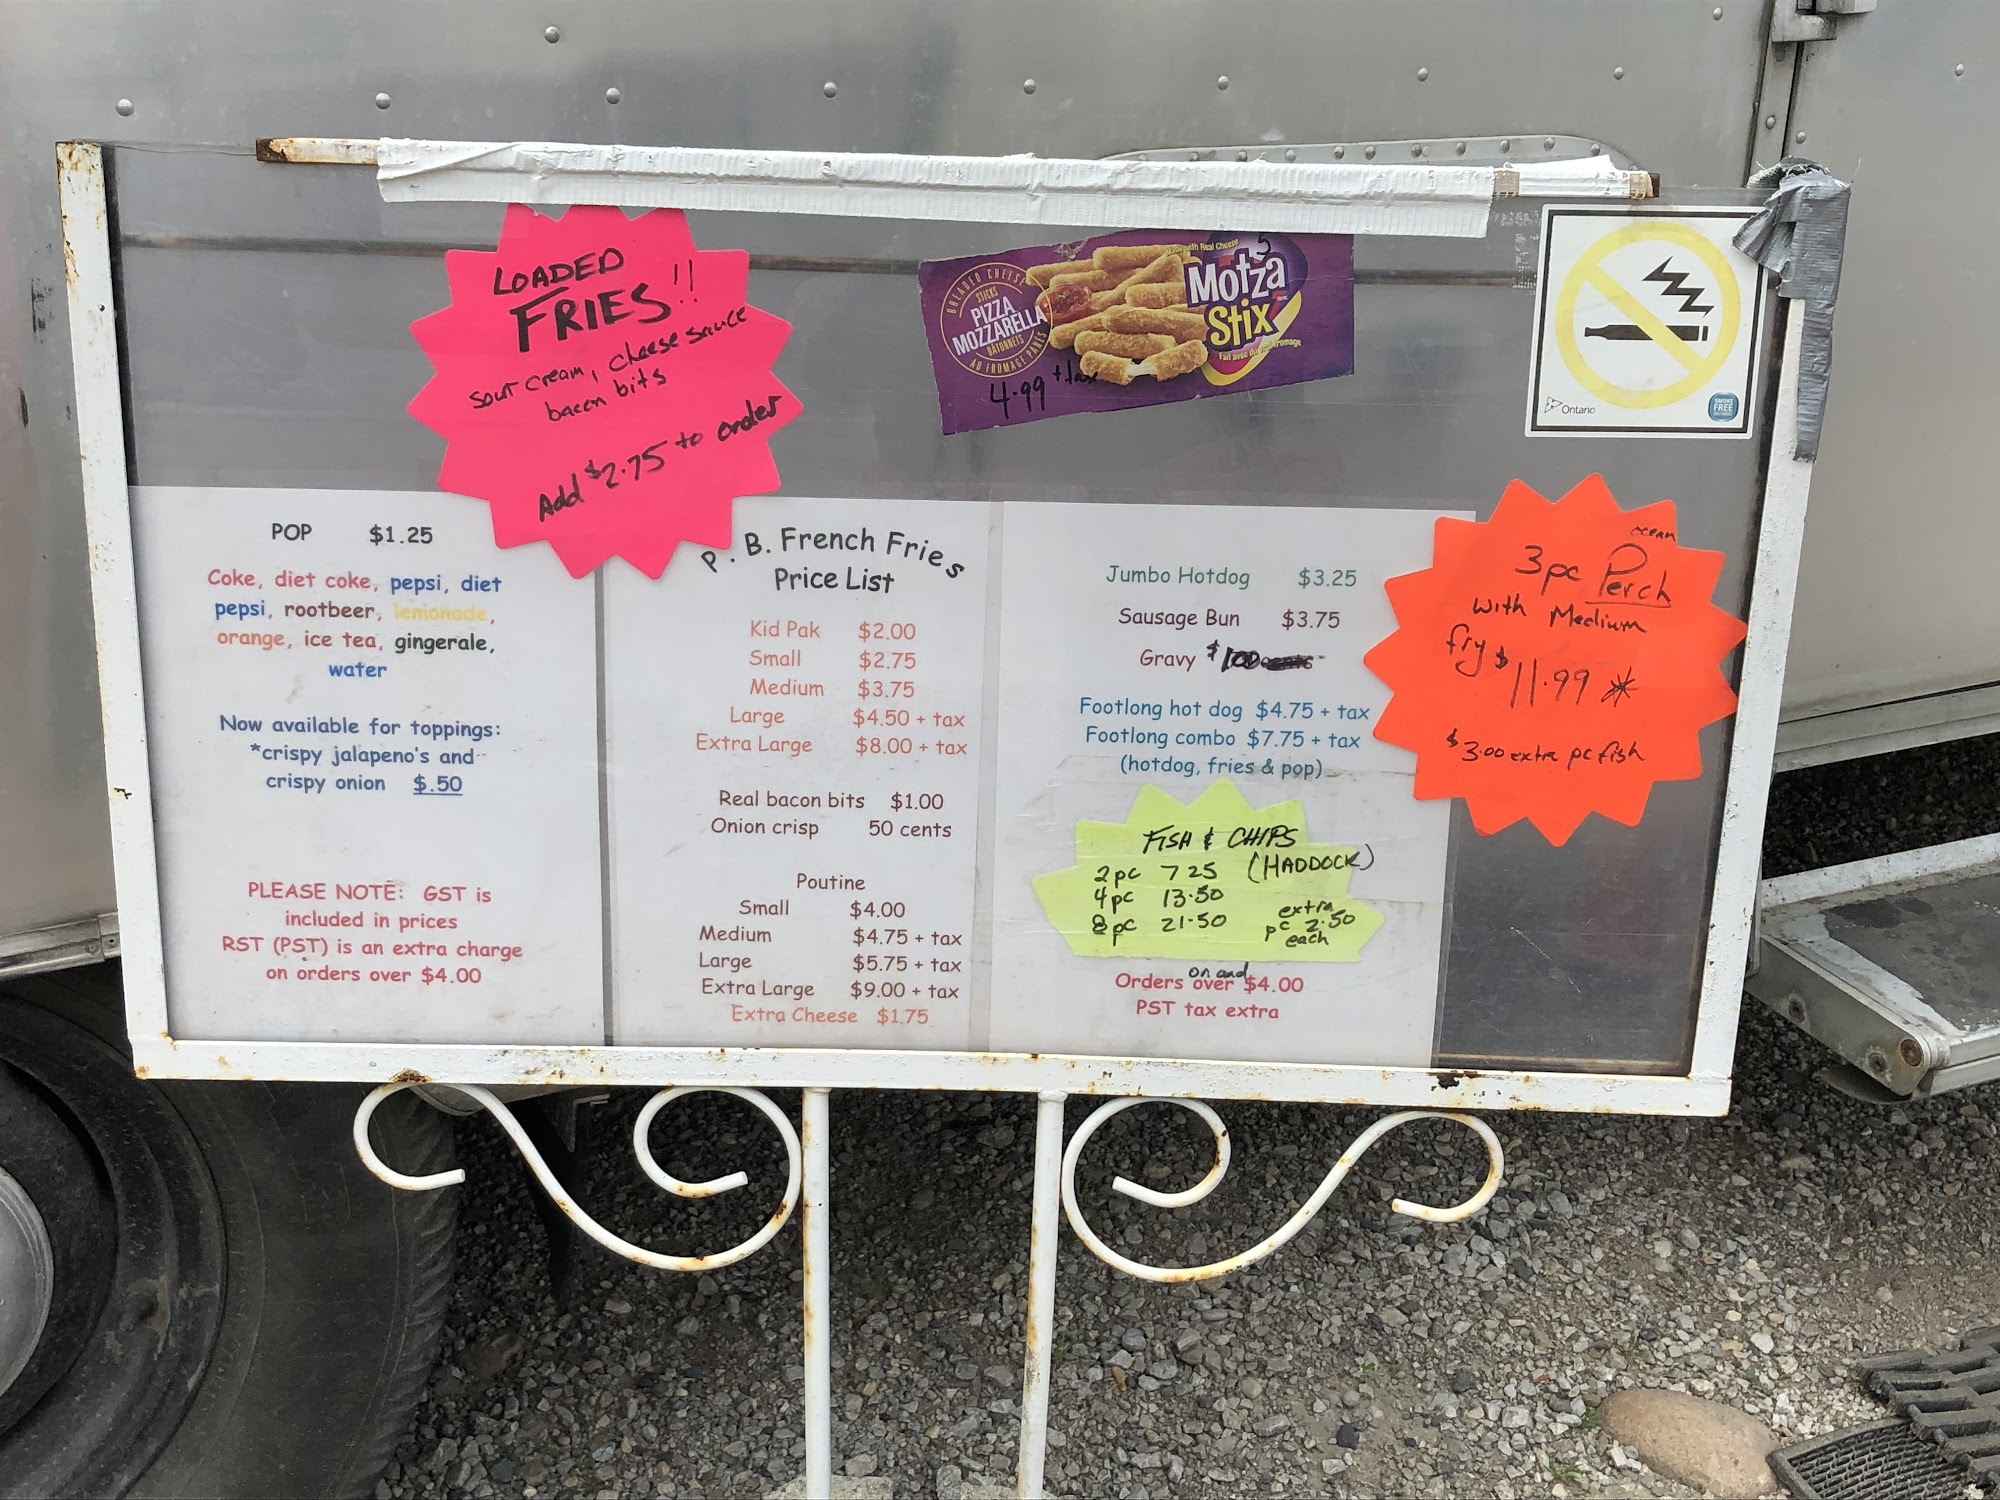 LOADED
FRIES!!
sour cream, cheese sauce
bacon bits
Add $2.75 to order
BREADED CHEESE
STICKS
PIZZA
MOZZARELLA
BÂTONNETS
AU FROMAGE PANÉS
with Real Cheese
5
Motza
Stix
4.99 + tax
Ontario
SMOKE
FREE
POP $1.25
Coke, diet coke, pepsi, diet
pepsi, rootbeer, lemonade,
orange, ice tea, gingerale,
water
Now available for toppings:
*crispy jalapeno's and
crispy onion $.50
PLEASE NOTE: GST is
included in prices
RST (PST) is an extra charge
on orders over $4.00
P. B. French Fries
Price List
Kid Pak $2.00
Small $2.75
Medium $3.75
Large $4.50 + tax
Extra Large $8.00 + tax
Real bacon bits $1.00
Onion crisp 50 cents
Poutine
Small $4.00
Medium $4.75 + tax
Large $5.75 + tax
Extra Large $9.00 + tax
Extra Cheese $1.75
Jumbo Hotdog $3.25
Sausage Bun $3.75
Gravy $1.00
Footlong hot dog $4.75 + tax
Footlong combo $7.75 + tax
(hotdog, fries & pop)
FISH & CHIPS
(HADDOCK)
2pc 7 25
4pc 13.50
8pc 21.50
extra
pc 2.50
each
on and
Orders over $4.00
PST tax extra
ocean
3pc Perch
with Medium
fry $11.99 *
$3.00 extra pc fish